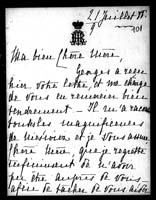 21 Juillet
Ma bien chère Mère,
Georges a reçu
hier votre lettre, et me charge
de vous en remercier bien
tendrement. Il m'a raconté
toutes les magnificences
de et je vous assure
chère Mère, que je regrette
infiniment de n'avoir
pu être auprès de vous
afin de tacher de vous